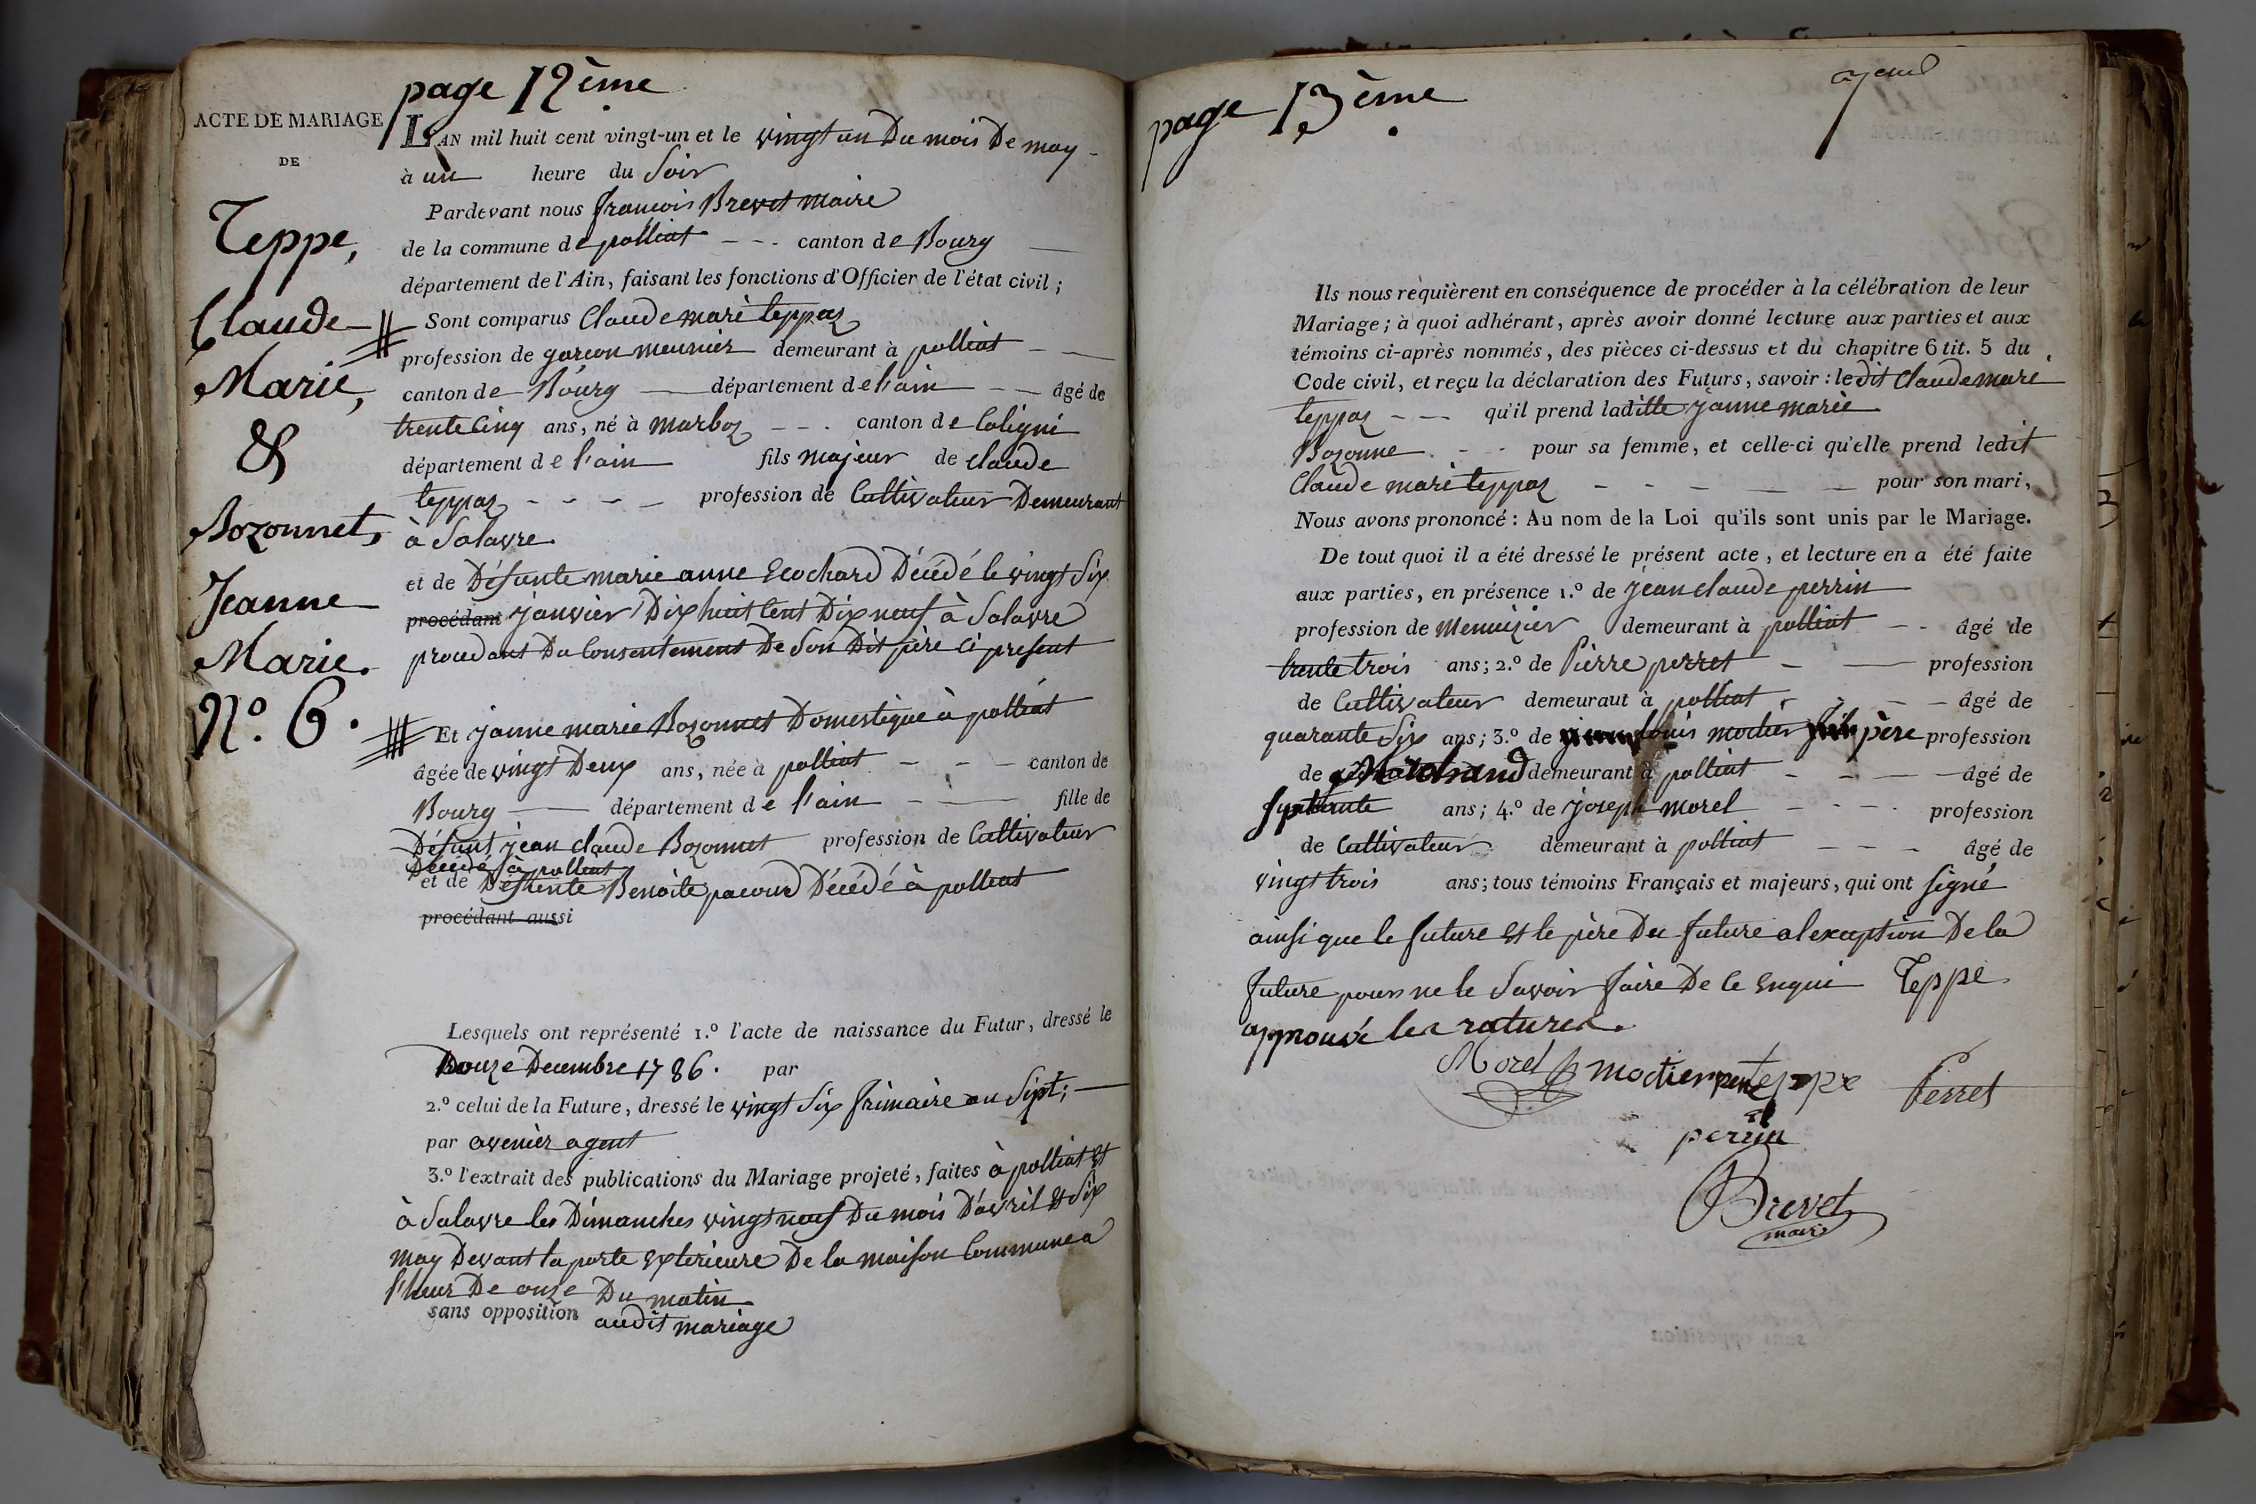 page 12ème
ACTE DE MARIAGE
DE
Teppe,
Claude
Marie,
&
Bozonnet,
Jeanne
Marie.
N.º 6.
L'AN mil huit cent vingt-un et le vingt un Du mois De may
à un heure du Soir
Pardevant nous françois Brevet maire
de la commune de polliat canton de Bourg
département de l'Ain, faisant les fonctions d'Officier de l'état civil ;
Sont comparus Claude marie teppaz
profession de garçon meunier demeurant à polliat
canton de Bourg département de l'ain âgé de
trente Cinq ans, né à marboz canton de Coligni
département de l'ain fils majeur de claude
teppaz profession de Cultivateur Demeurant
à Salavre
et de Défunte marie anne Ecochard Décédé le vingt Six
procédant janvier Dix huit Cent Dix neuf à Salavre
procedant Du Consentement De Son Dit père Ci present
Et janne marie Bozonnet Domestique à polliat
âgée de vingt Deux ans, née à polliat canton de
Bourg département de l'ain fille de
Défunt jean claude Bozonnet profession de Cultivateur
Décédé à polliat
et de Défunte Benoite pacoud Décédé à polliat
procédant aussi
Lesquels ont représenté 1.º l'acte de naissance du Futur, dressé le
Douze Decembre 1786. par
2.º celui de la Future, dressé le vingt Six frimaire an Sept;
par avenier agent
3.º l'extrait des publications du Mariage projeté, faites à polliat et
à Salavre les Dimanches vingt neuf Du mois D'avril et Six
may Devant la porte exterieure De la maison Commune à
l'heur De onze Du matin
sans opposition audit mariage
page 13ème
Ils nous requièrent en conséquence de procéder à la célébration de leur
Mariage ; à quoi adhérant, après avoir donné lecture aux parties et aux
témoins ci-après nommés, des pièces ci-dessus et du chapitre 6 tit. 5 du
Code civil, et reçu la déclaration des Futurs, savoir : ledit Claude marie
teppaz qu'il prend laditte janne marie
Bozonne pour sa femme, et celle-ci qu'elle prend ledit
Claude marie teppaz pour son mari,
Nous avons prononcé : Au nom de la Loi qu'ils sont unis par le Mariage.
De tout quoi il a été dressé le présent acte, et lecture en a été faite
aux parties, en présence 1.º de jean claude perrin
profession de Menuizier demeurant à polliat âgé de
trente trois ans ; 2.º de Pierre perret profession
de Cultivateur demeuraut à polliat âgé de
quarante Six ans ; 3.º de louis moctier père profession
de Marchand demeurant à polliat âgé de
Septante ans ; 4.º de joseph morel profession
de Cultivateur demeurant à polliat âgé de
vingt trois ans ; tous témoins Français et majeurs, qui ont signé
ainsi que le future et le père Du future a lexception De la
future pour ne le Savoir faire De ce enqui Teppe
approuvé les ratures.
Morel moctier père teppe Perret
perrin
Brevet
maire